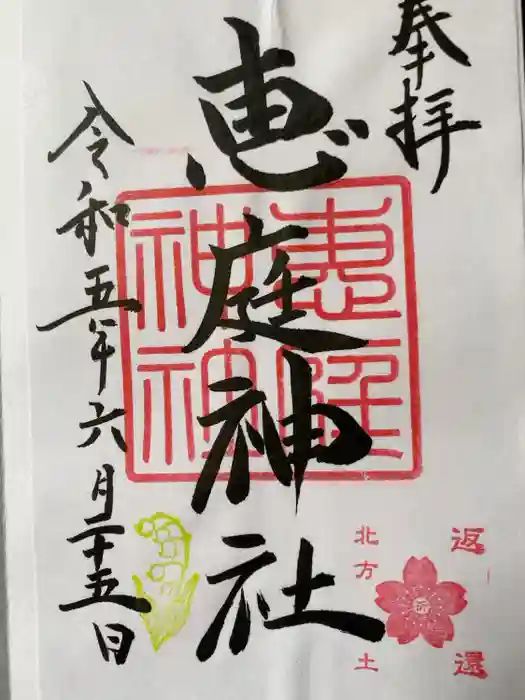 奉拝
恵庭神社
惠庭神社
令和五年六月二十五日
返還
北方土
祈